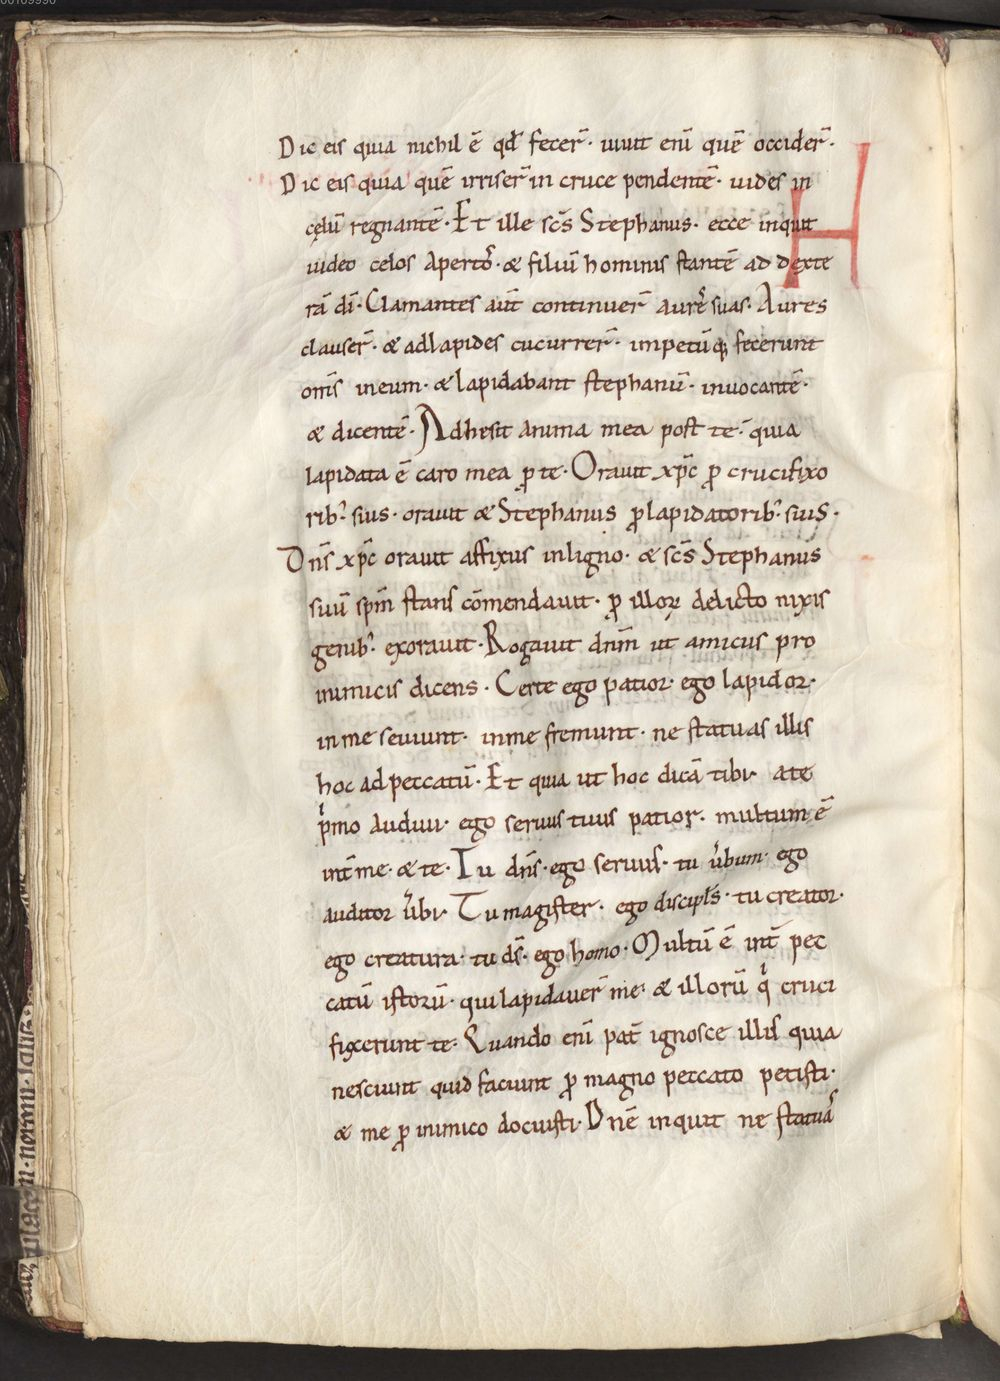 00109990
Dic eis quia nichil ē qđ fecer̄· uiuit eni̅ quē occider̄·
Dic eis quia quē irriser̄ in cruce pendentē· uides in
cęlū regnantē· Et ille sc̄s Stephanus· ecce inquit
uideo celos apertos· & filiū hominis stantē ad dexte
rā dī· Clamantes aut̄ continuer̄ aures suas· Aures
clauser̄· & adlapides cucurrer̄· impetūq; fecerunt
om̄s ineum· & lapidabant stephanū· inuocantē·
& dicentē· Adhesit anima mea post te· quia
lapidata ē caro mea p̱ te· Orauit xp̄c ꝓ crucifixo
rib; suis· orauit & Stephanus ꝓ lapidatorib; suis·
Dn̄s xp̄c orauit affixus inligno· & sc̄s Stephanus
suū sp̄m stans cōmendauit· ꝓ illoꝝ delicto nixis
genib; exorauit· Rogauit dn̄m ut amicus pro
inimicis dicens· Certe ego patior· ego lapidor·
in me seuiunt· inme fremunt· ne statuas illis
hoc adpeccatū· Et quia ut hoc dicā tibi· ate
pͥmo audiui· ego seruus tuus patior· multum ē
int̄ me· & te· Tu dn̄s· ego seruus· tu u̅bum· ego
auditor u̅bi· Tu magister· ego discipl̄s· tu creator·
ego creatura· tu ds̄· ego homo· Multū ē int̄ pec
catū istorū· qui lapidauer̄ me· & illorū qͥ cruci
fixerunt te· Quando eni̅ pat̄ ignosce illis quia
nesciunt quid faciunt ꝓ magno peccato petisti·
& me ꝓ inimico docuisti· Dn̄e inquit ne statuas